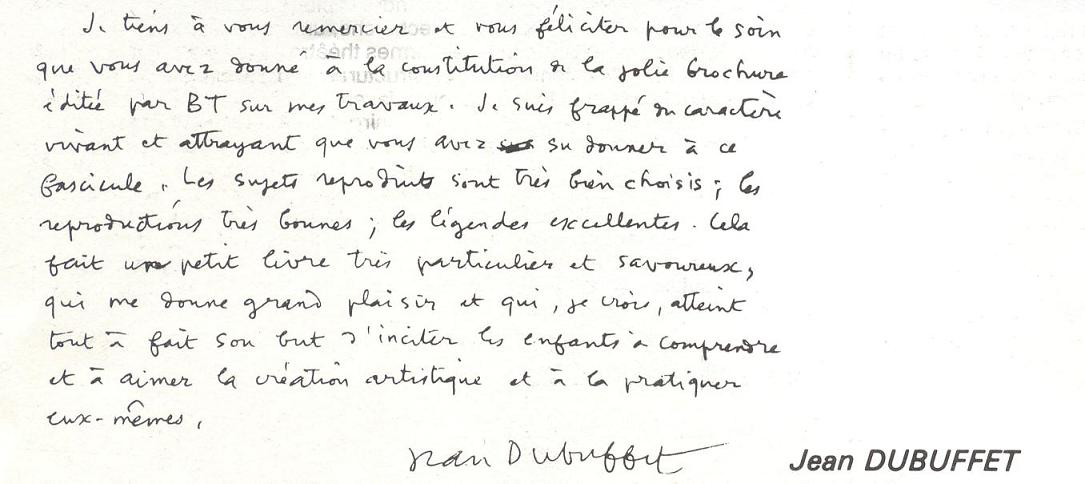 Je tiens à vous remercier et vous féliciter pour le soin
que vous avez donné à la constitution de la jolie brochure
éditée par BT sur mes travaux. Je suis frappé du caractère
vivant et attrayant que vous avez su donner à ce
fascicule. Les sujets reproduits sont très bien choisis ; les
reproductions très bonnes ; les légendes excellentes. Cela
fait un petit livre très particulier et savoureux,
qui me donne grand plaisir et qui, je crois, atteint
tout à fait son but d'inciter les enfants à comprendre
et à aimer la création artistique et à la pratiquer
eux-mêmes.
Jean Dubuffet
Jean DUBUFFET